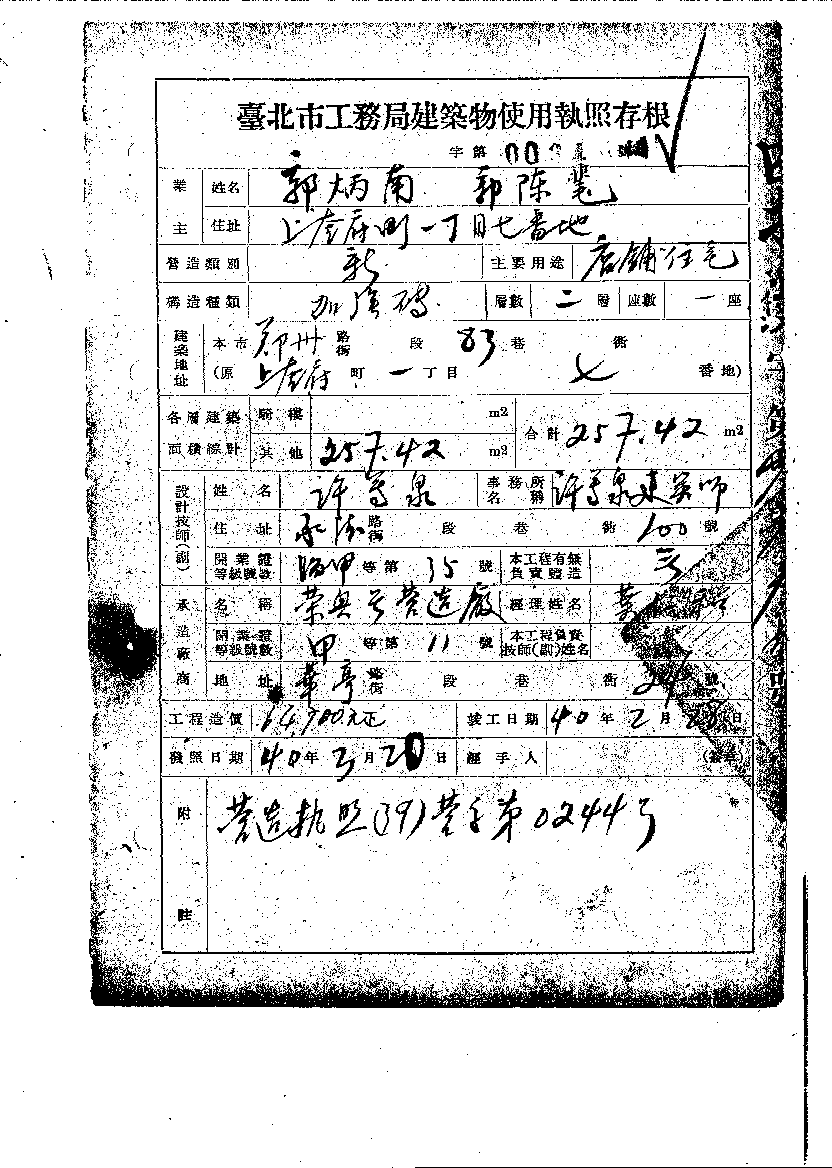 臺北市工務局建築物使用執照存根
字第 00 號
業主 姓名 郭炳南 郭陈
住址 上奎府町一丁目七番地
營造類別 新 主要用途 店鋪住宅
構造種類 加强磚 層數 二層 座數 一座
建築地址 本市 郑州 路街 段 83 巷 衖
(原 上奎府町 一丁目 七 番地)
各層建築面積綜計 騎樓 m2 合計 257.42 m2
其他 257.42 m2
設計技師(副) 姓名 許 泉 事務所名稱 許 泉建築師
住址 承德 路街 段 巷 衖 100 號
開業證等級號數 甲 等第 35 號 本工程有無負責監造
承造廠商 名稱 榮興 营造廠 經理姓名 葉
開業證等級號數 甲 等第 11 號 本工程負責技師(副)姓名
地址 華亭 路街 段 巷 衖 號
工程造價 64,700元正 竣工日期 40年2月 日
發照日期 40年3月20日 經手人
附註 营造执照(39)营字第0244号